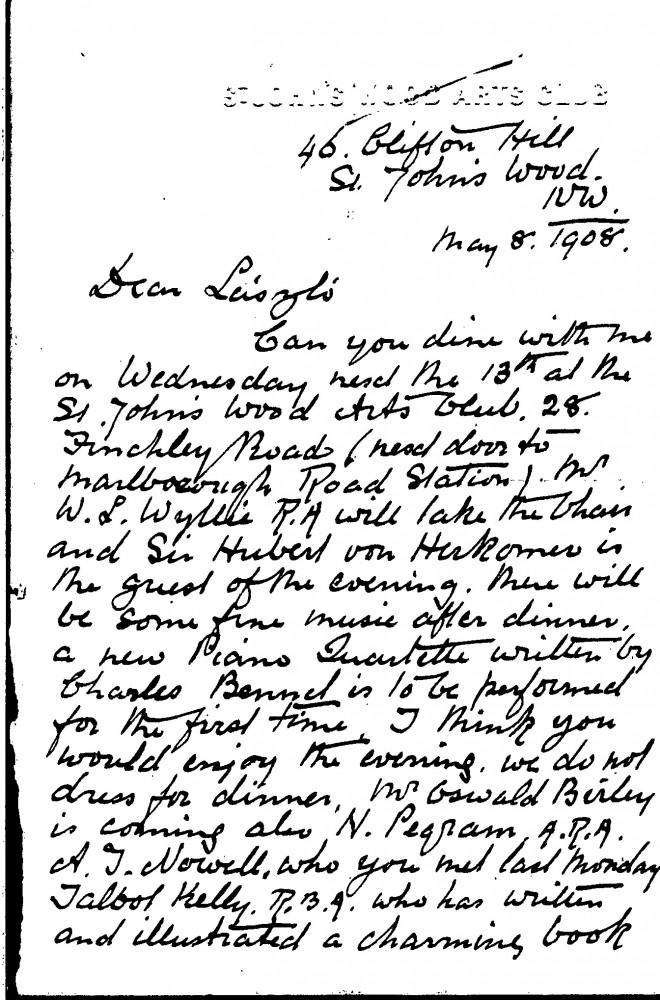 ST JOHN'S WOOD ARTS CLUB
46. Clifton Hill
St. John's Wood.
NW.
May 8. 1908.
Dear László
Can you dine with me
on Wednesday next the 13th at the
St. John's Wood Arts Club, 28.
Finchley Road (next door to
Marlborough Road Station). Mr
W. L. Wyllie R.A will take the Chair
and Sir Hubert von Herkomer is
the guest of the evening. there will
be some fine music after dinner,
a new Piano Quartette written by
Charles Bennet is to be performed
for the first time, I think you
would enjoy the evening. we do not
dress for dinner, Mr Oswald Birley
is coming also N. Pegram, A.R.A.
A. T. Nowell, who you met last Monday
Talbot Kelly. R.B.A. who has written
and illustrated a charming book